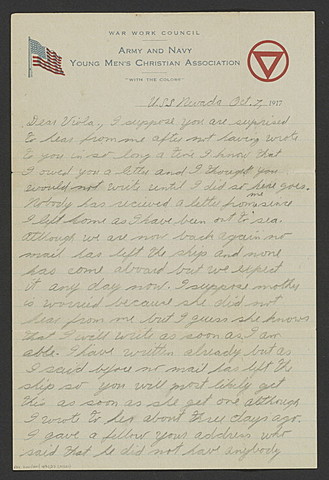 WAR WORK COUNCIL
ARMY AND NAVY
YOUNG MEN'S CHRISTIAN ASSOCIATION
"WITH THE COLORS"
U.S.S. Nevada Oct. 7, 1917
Dear Viola, I suppose you are surprised
to hear from me after not having wrote
to you in so long a time I know that
I owed you a letter and I thought you
would not write until I did so here goes.
Nobody has recieved a letter from me since
I left home as I have been out to sea.
Although we are now back again no
mail has left the ship and none
has come aboard but we expect
it any day now. I suppose mother
is worried because she did not
hear from me but I guess she knows
that I will write as soon as I am
able. I have written already but as
I said before no mail has left the
ship so you will most likely get
this as soon as she get one although
I wrote to her about three days ago.
I gave a fellow your address who
said that he did not have anybody